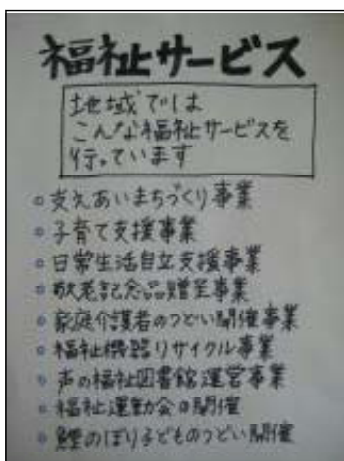 福祉サービス
地域では
こんな福祉サービスを
行っています
支えあいまちづくり事業
子育て支援事業
日常生活自立支援事業
敬老記念品贈呈事業
家庭介護者のつどい開催事業
福祉機器リサイクル事業
声の福祉図書館運営事業
福祉運動会の開催
鯉のぼり子どものつどい開催